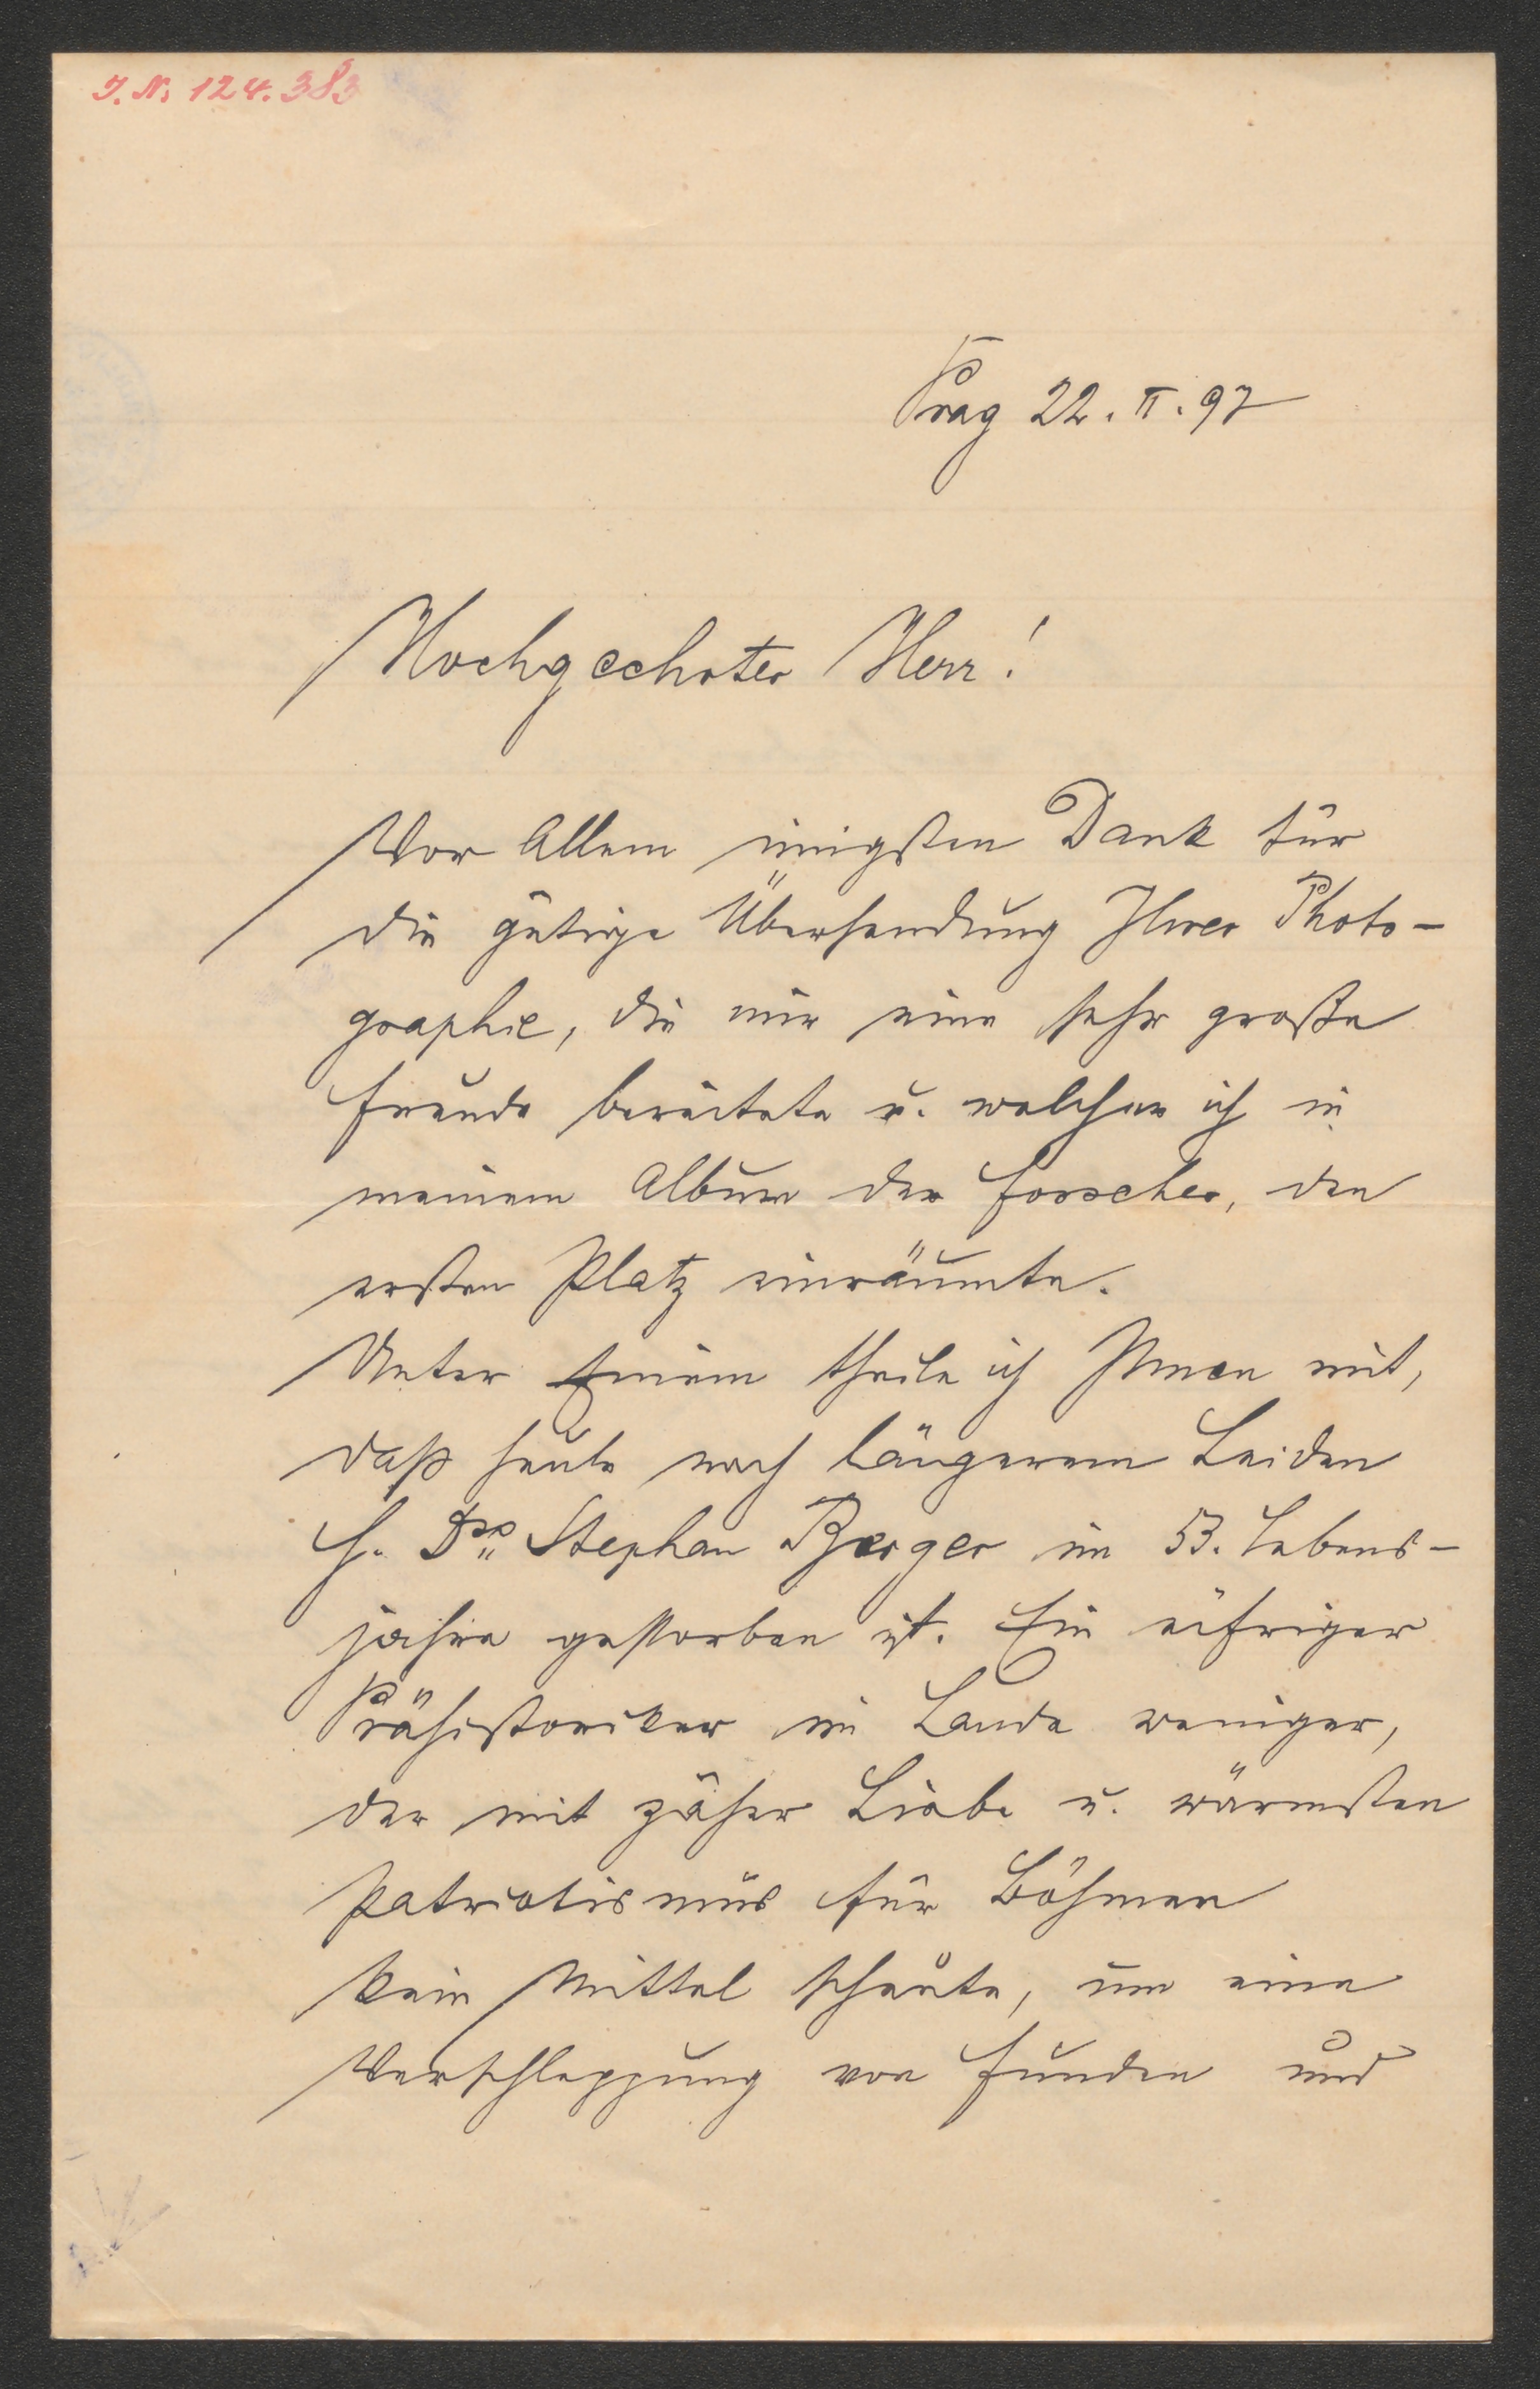 J. N. 124.383
Prag 22. II. 97
Hochgeehrter Herr!
Vor Allem innigsten Dank für
die gütige Übersendung Ihrer Photo-
graphie, die mir eine sehr große
Freude bereitete u. welcher ich in
meinem Album der Forscher, den
ersten Platz einräumte.
Unter Einem theile ich Ihnen mit,
daß heute nach längerem Leiden
H. Dr. Stephan Berger im 53. Lebens-
jahre gestorben ist. Ein eifriger
Prähistoriker im Lande weniger,
der mit zäher Liebe u. wärmsten
Patriotismus für Böhmen
kein Mittel scheute, um eine
Verschleppung von Funden und